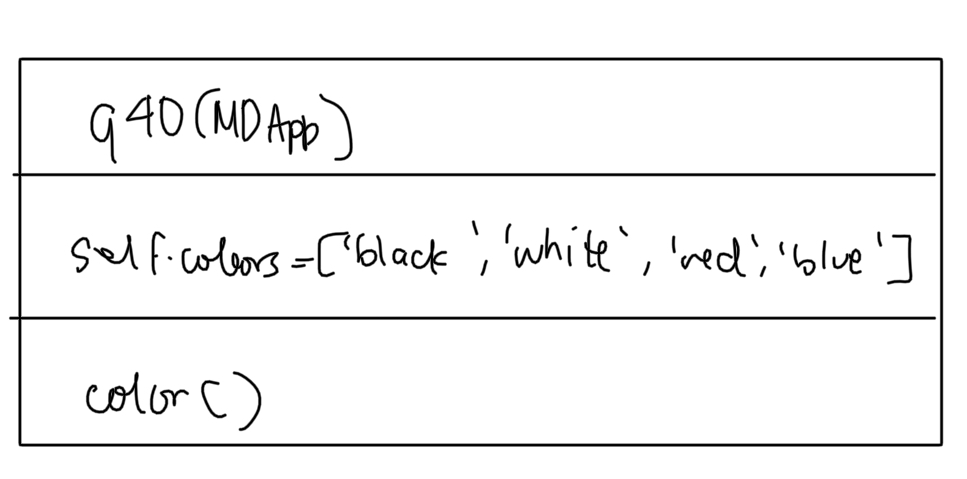 q40(MDApp)
self.colors=['black','white','red','blue']
color()